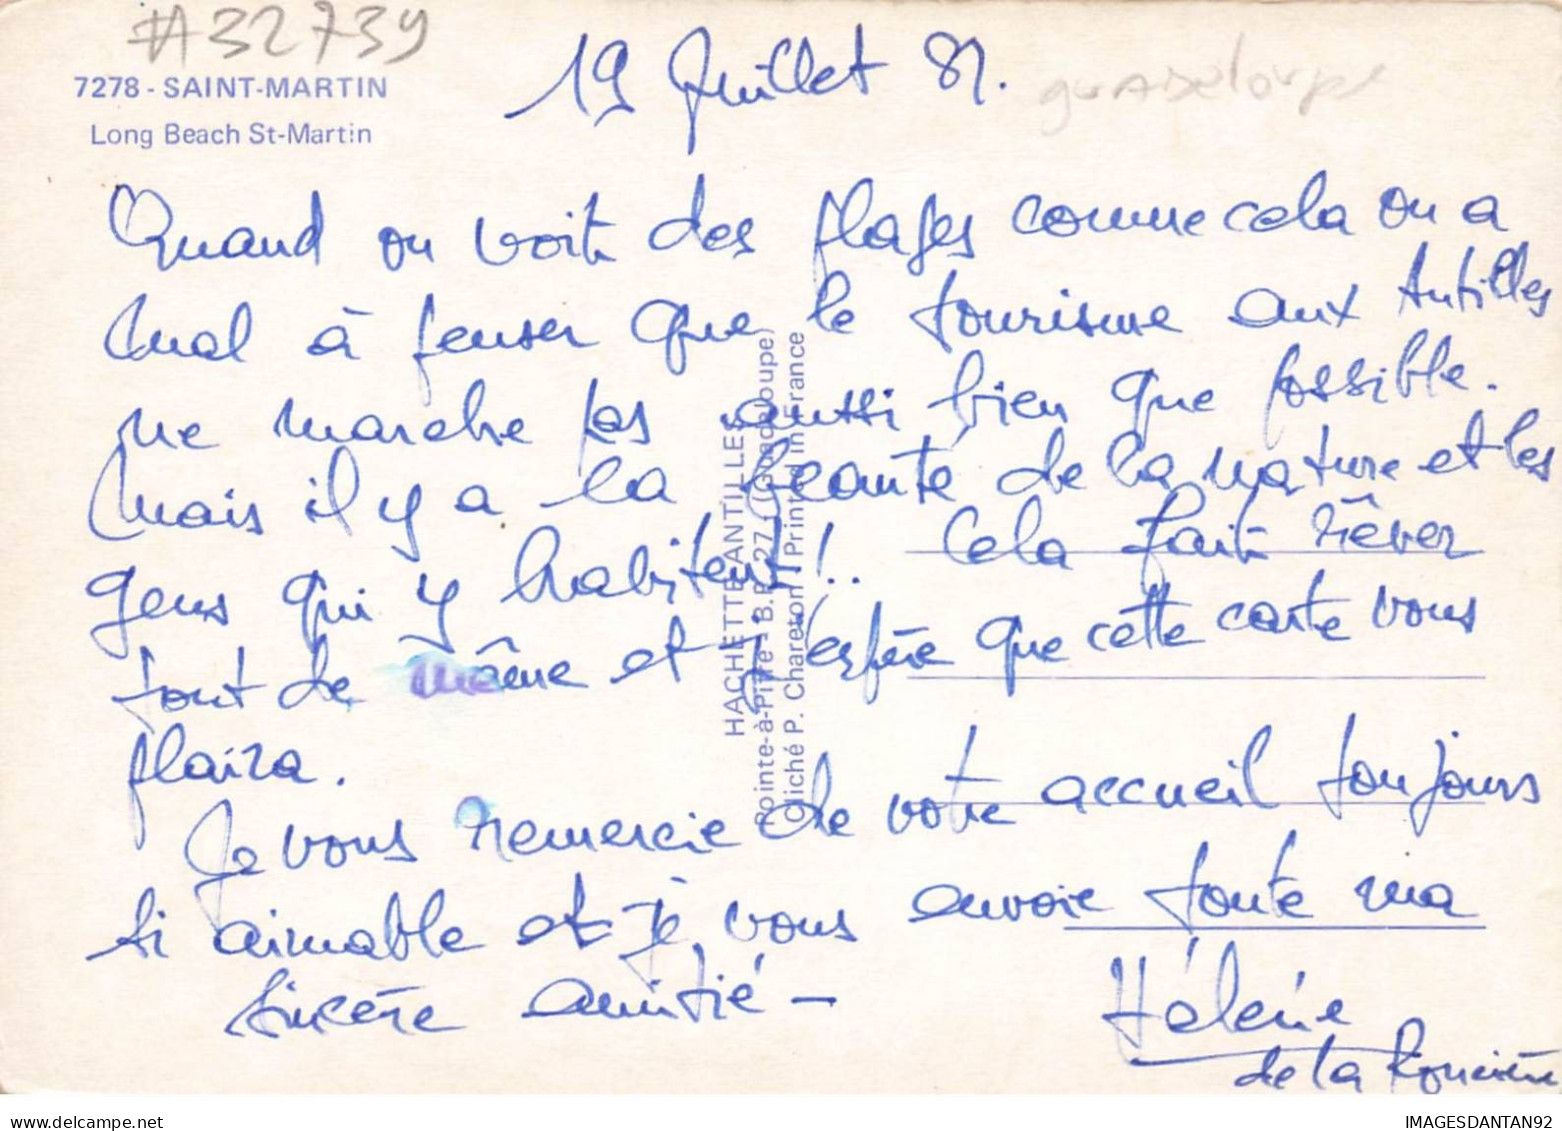 #32739
7278 - SAINT-MARTIN
Long Beach St-Martin
19 Juillet 81.
guadeloupe
Quand on voit des plages comme cela on a
mal à penser que le tourisme aux Antilles
ne marche pas aussi bien que possible.
Mais il y a la beauté de la nature et les
gens qui y habitent!.. Cela fait rêver
tout de même et j'espère que cette carte vous
plaira.
Je vous remercie de votre accueil toujours
si aimable et je vous envoie toute ma
sincère amitié -
Hélène
de la Roncière
HACHETTE ANTILLES
Pointe-à-Pitre - B.P. 27 (Guadeloupe)
Cliché P. Chareton / Printed in France
delcampe.net
IMAGESDANTAN92